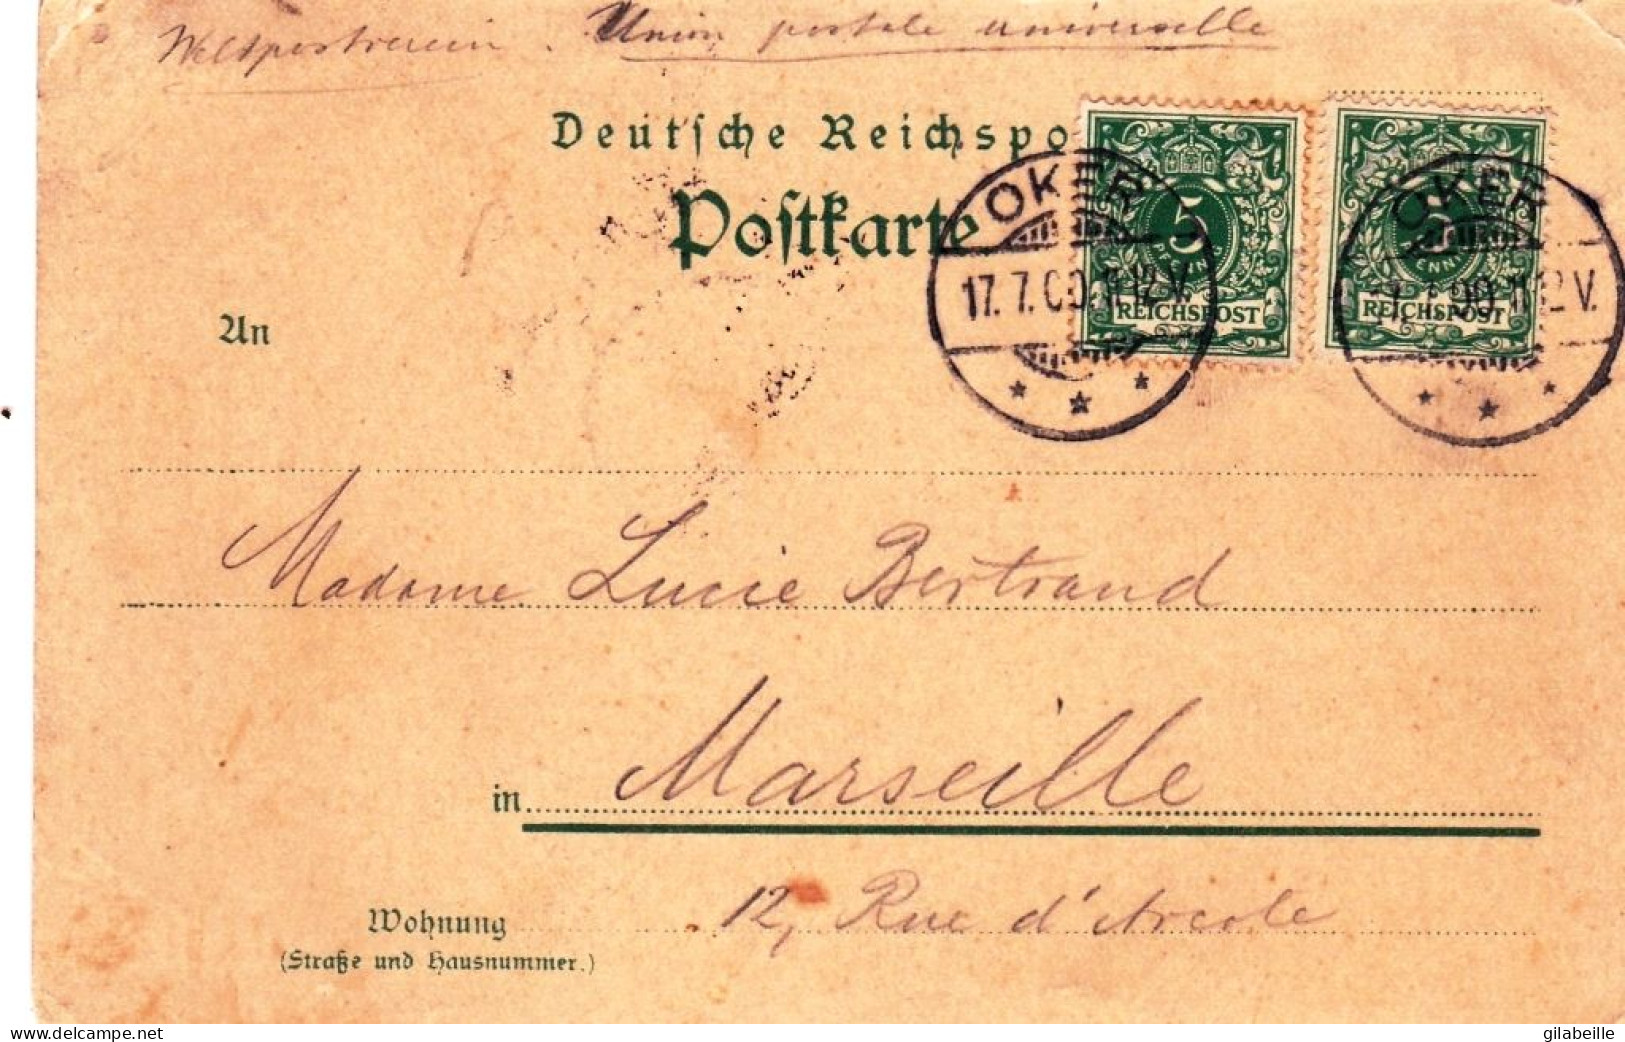 Weltpostverein . Union postale universelle
Deutſche Reichspo
Poſtkarte
OKER
17.7.00.11-12 V.
5
PFENNIG
REICHSPOST
OKER
17.7.00.11-12 V.
5
PFENNIG
REICHSPOST
An
Madame Lucie Bertrand
in Marseille
Wohnung 12, Rue d'Arcole
(Straße und Hausnummer.)
delcampe.net
gilabeille